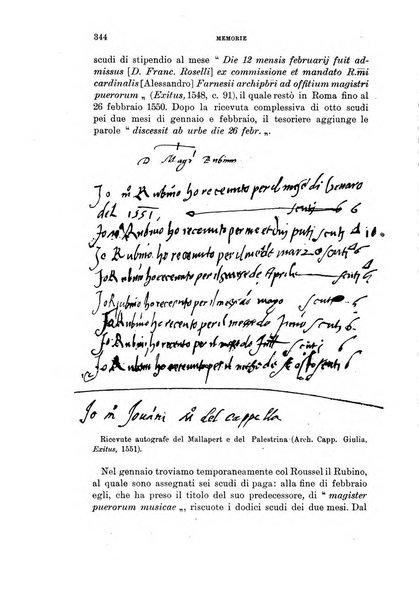 344 MEMORIE
scudi di stipendio al mese " Die 12 mensis februarij fuit ad-
missus [D. Franc. Roselli] ex commissione et mandato R.mi
cardinalis [Alessandro] Farnesii archipbri ad offitium magistri
puerorum „ (Exitus, 1548, c. 91), il quale restò in Roma fino al
26 febbraio 1550. Dopo la ricevuta complessiva di otto scudi
pei due mesi di gennaio e febbraio, il tesoriere aggiunge le
parole " discessit ab urbe die 26 febr. „.
D Magr Rubinus
Jo m Rubino ho receuuto per il mese di Genaro
del 1551, scuti 6 6
Jo m Rubino ho receuuto per me et dui putti scuti 10
Jo Rubino ho receuuto per il mese de marzo scuti 6
Jo Rubino ho receuuto per il mese de Aprile scuti 6
Jo Rubino ho receuuto per il mese de mago scuti 6
Jo m Rubino ho receuuto per il mese do Junio scuti 6
Jo m Rubino ho receuuto per il mese do scuti 6
Jo m Rubino ho receuuto per il mese de scuti 6
Jo m Jouani m del cappella
Ricevute autografe del Mallapert e del Palestrina (Arch. Capp. Giulia,
Exitus, 1551).
Nel gennaio troviamo temporaneamente col Roussel il Rubino,
al quale sono assegnati sei scudi di paga: alla fine di febbraio
egli, che ha preso il titolo del suo predecessore, di " magister
puerorum musicae „, riscuote i dodici scudi dei due mesi. Dal